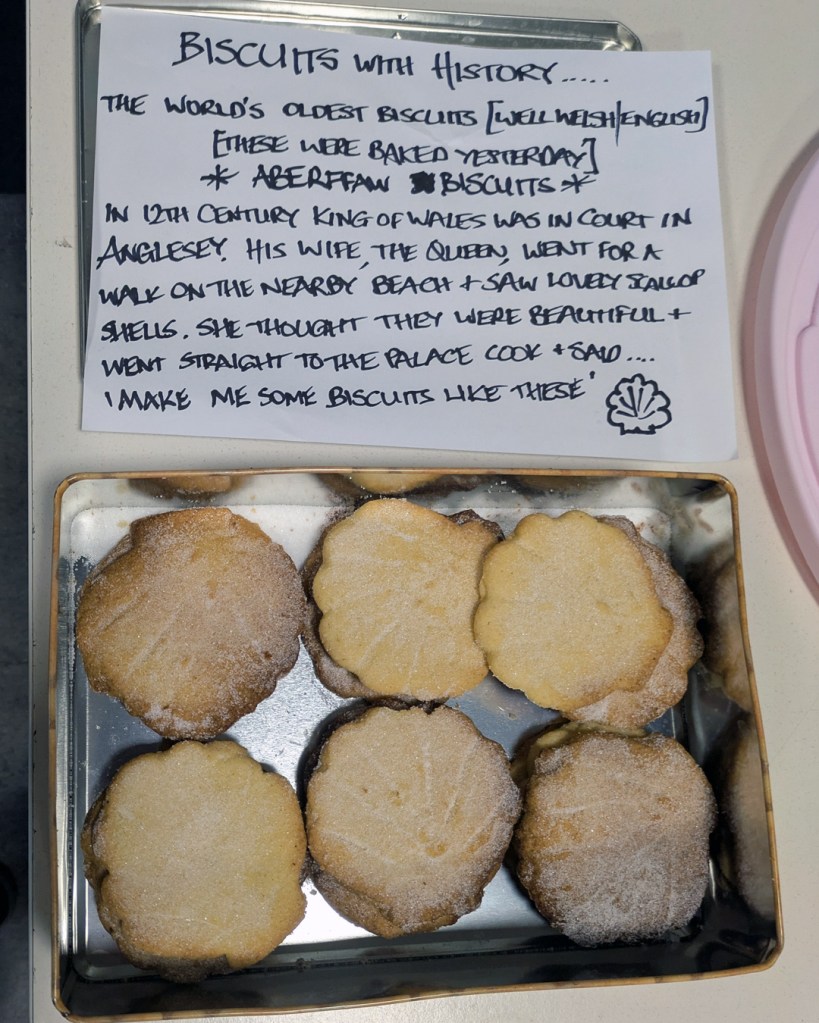 BISCUITS WITH HISTORY.....
THE WORLD'S OLDEST BISCUITS [WELL WELSH/ENGLISH]
[THESE WERE BAKED YESTERDAY]
* ABERFFAW BISCUITS *
IN 12TH CENTURY KING OF WALES WAS IN COURT IN
ANGLESEY. HIS WIFE, THE QUEEN, WENT FOR A
WALK ON THE NEARBY BEACH + SAW LOVELY SCALLOP
SHELLS. SHE THOUGHT THEY WERE BEAUTIFUL +
WENT STRAIGHT TO THE PALACE COOK + SAID....
'MAKE ME SOME BISCUITS LIKE THESE'